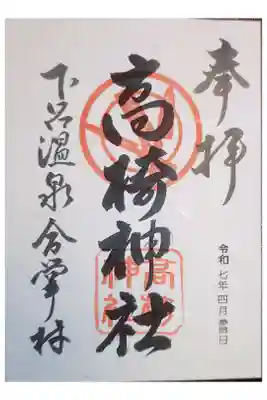 奉拝
高椅神社
下呂温泉合掌村
令和七年四月吉日